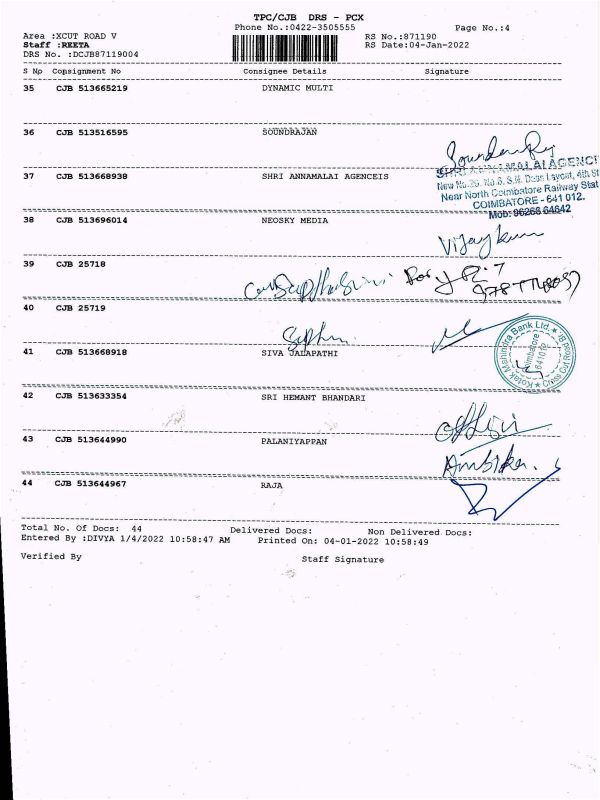 TPC/CJB DRS - PCX
Phone No.:0422-3505555
Page No.:4
Area :XCUT ROAD V
RS No.:871190
Staff :REETA
RS Date:04-Jan-2022
DRS No. :DCJB87119004
S No Consignment No Consignee Details Signature
35 CJB 513665219 DYNAMIC MULTI
36 CJB 513516595 SOUNDRAJAN
37 CJB 513668938 SHRI ANNAMALAI AGENCEIS
SHRI ANNAMALAI AGENCI
Near North Coimbatore Railway Stat
COIMBATORE - 641 012.
Mob: 96266 64642
38 CJB 513696014 NEOSKY MEDIA
Vijaykum
39 CJB 25718
40 CJB 25719
Kotak Mahindra Bank Ltd.
Coimbatore
641012
41 CJB 513668918 SIVA JALAPATHI
42 CJB 513633354 SRI HEMANT BHANDARI
43 CJB 513644990 PALANIYAPPAN
Ambika.
44 CJB 513644967 RAJA
Total No. Of Docs: 44 Delivered Docs: Non Delivered Docs:
Entered By :DIVYA 1/4/2022 10:58:47 AM Printed On: 04-01-2022 10:58:49
Verified By Staff Signature